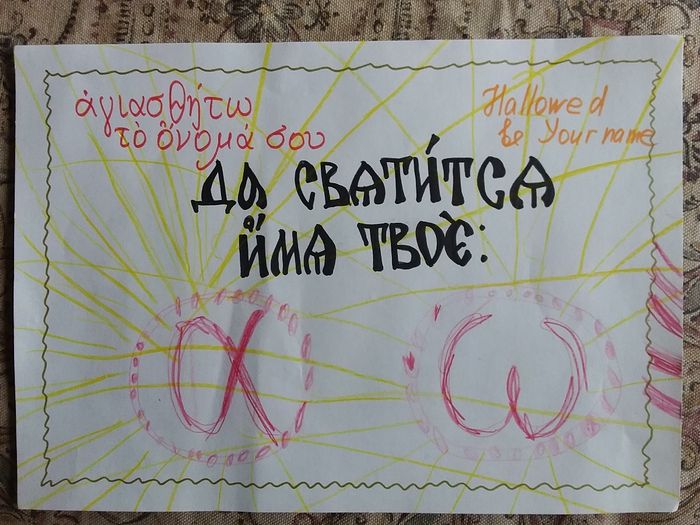 ἁγιασθήτω
τὸ ὄνομά σου
Hallowed
be Your name
Да свѧти́тсѧ
и҆́мѧ твоѐ:
α ω